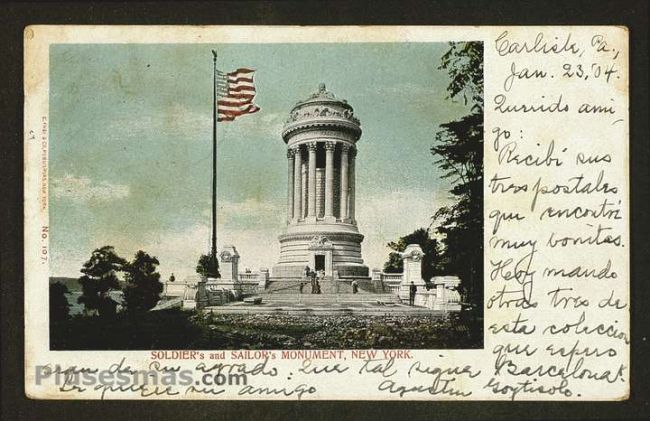 Carlisle, Pa.,
Jan. 23, '04.
Querido ami
go:
Recibí sus
tres postales
que encontré
muy bonitas.
Hoy mando
otras tres de
esta coleccion
que espero
sean de su agrado. Que tal sigue Barcelona?
Le quiere su amigo Agustin Goytisolo.
SOLDIER's and SAILOR's MONUMENT, NEW YORK.
No. 107.
Plusesmas.com